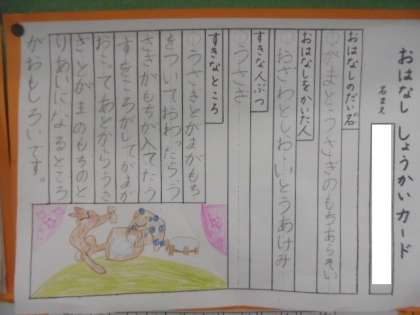 おはなし しょうかいカード
名まえ
おはなしのだい名
がまとうさぎのもちあらそい
おはなしをかいた人
おざわとしお・いとうあけみ
すきな人ぶつ
うさぎ
すきなところ
うさぎとがまがもち
をついておわったらう
さぎがもちが入てたう
すをころがしてがまが
おこってあとからうさ
ぎとがまのもちのと
りあいになるところ
がおもしろいです。